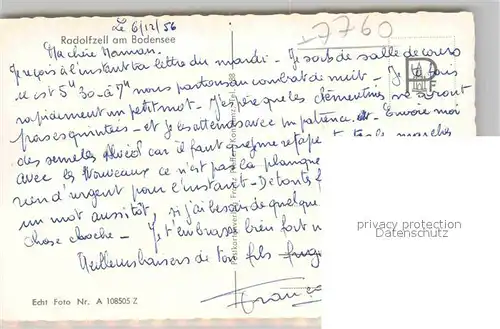 Le 6/12/56
7760
Radolfzell am Bodensee
Ma chère Maman.
Je reçois à l'instant ta lettre du mardi - Je sors de salle de cours
il est 5h 30 - à 7h nous partons au combat de nuit - Je
rapidement un petit mot - J'espère que les clémentines ne seront
pas esquintées - et je les attends avec impatience. - Envoie moi
des semelles car il faut que je me retape
avec les Nouveaux ce n'est pas la planque
rien d'urgent pour l'instant - De toutes
un mot aussitôt, si j'ai besoin de quelque
chose cloche - Je t'embrasse bien fort
Meilleurs baisers de ton fils
Postkartenverlag Franz Pfeffer, Konstanz
privacy protection
Datenschutz
Echt Foto Nr. A 108505 Z